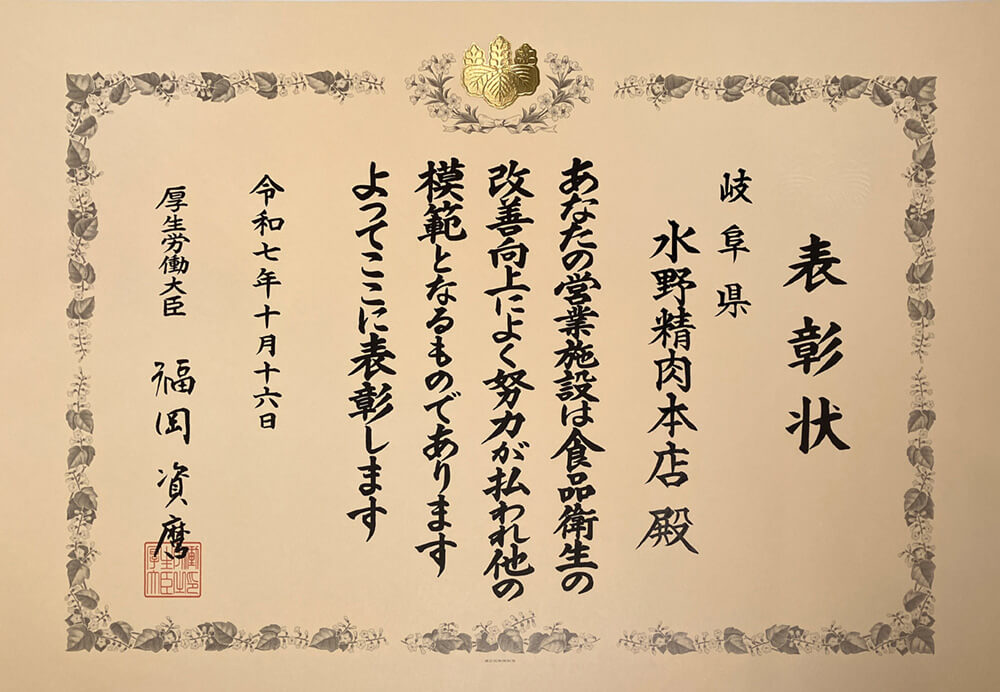 表彰状
岐阜県
水野精肉本店 殿
あなたの営業施設は食品衛生の
改善向上によく努力が払われ他の
模範となるものであります
よってここに表彰します
令和七年十月十六日
厚生労働大臣 福岡資麿